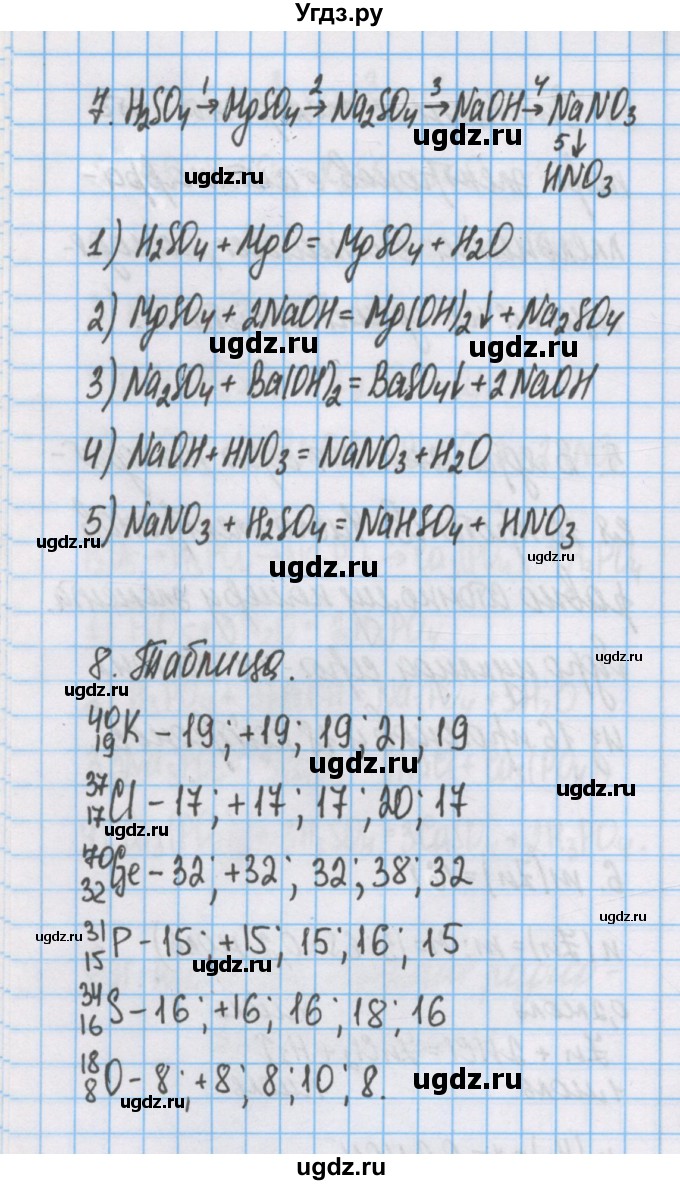 Угдз.ру
7. H₂SO₄ →¹ MgSO₄ →² Na₂SO₄ →³ NaOH →⁴ NaNO₃
ugdz.ru
5↓
ugdz.ru
HNO₃
1) H₂SO₄ + MgO = MgSO₄ + H₂O
2) MgSO₄ + 2NaOH = Mg(OH)₂↓ + Na₂SO₄
ugdz.ru ugdz.ru
3) Na₂SO₄ + Ba(OH)₂ = BaSO₄↓ + 2NaOH
4) NaOH + HNO₃ = NaNO₃ + H₂O
5) NaNO₃ + H₂SO₄ = NaHSO₄ + HNO₃
ugdz.ru ugdz.ru
ugdz.ru
8. Таблица.
ugdz.ru
ugdz.ru
⁴⁰₁₉K – 19; +19; 19; 21; 19
ugdz.ru
ugdz.ru
³⁷₁₇Cl – 17; +17; 17; 20; 17
ugdz.ru
⁷⁰₃₂Ge – 32; +32; 32; 38; 32
ugdz.ru
³¹₁₅P – 15; +15; 15; 16; 15
ugdz.ru
ugdz.ru
³⁴₁₆S – 16; +16; 16; 18; 16
¹⁸₈O – 8; +8; 8; 10; 8.
ugdz.ru
ugdz.ru
ugdz.ru